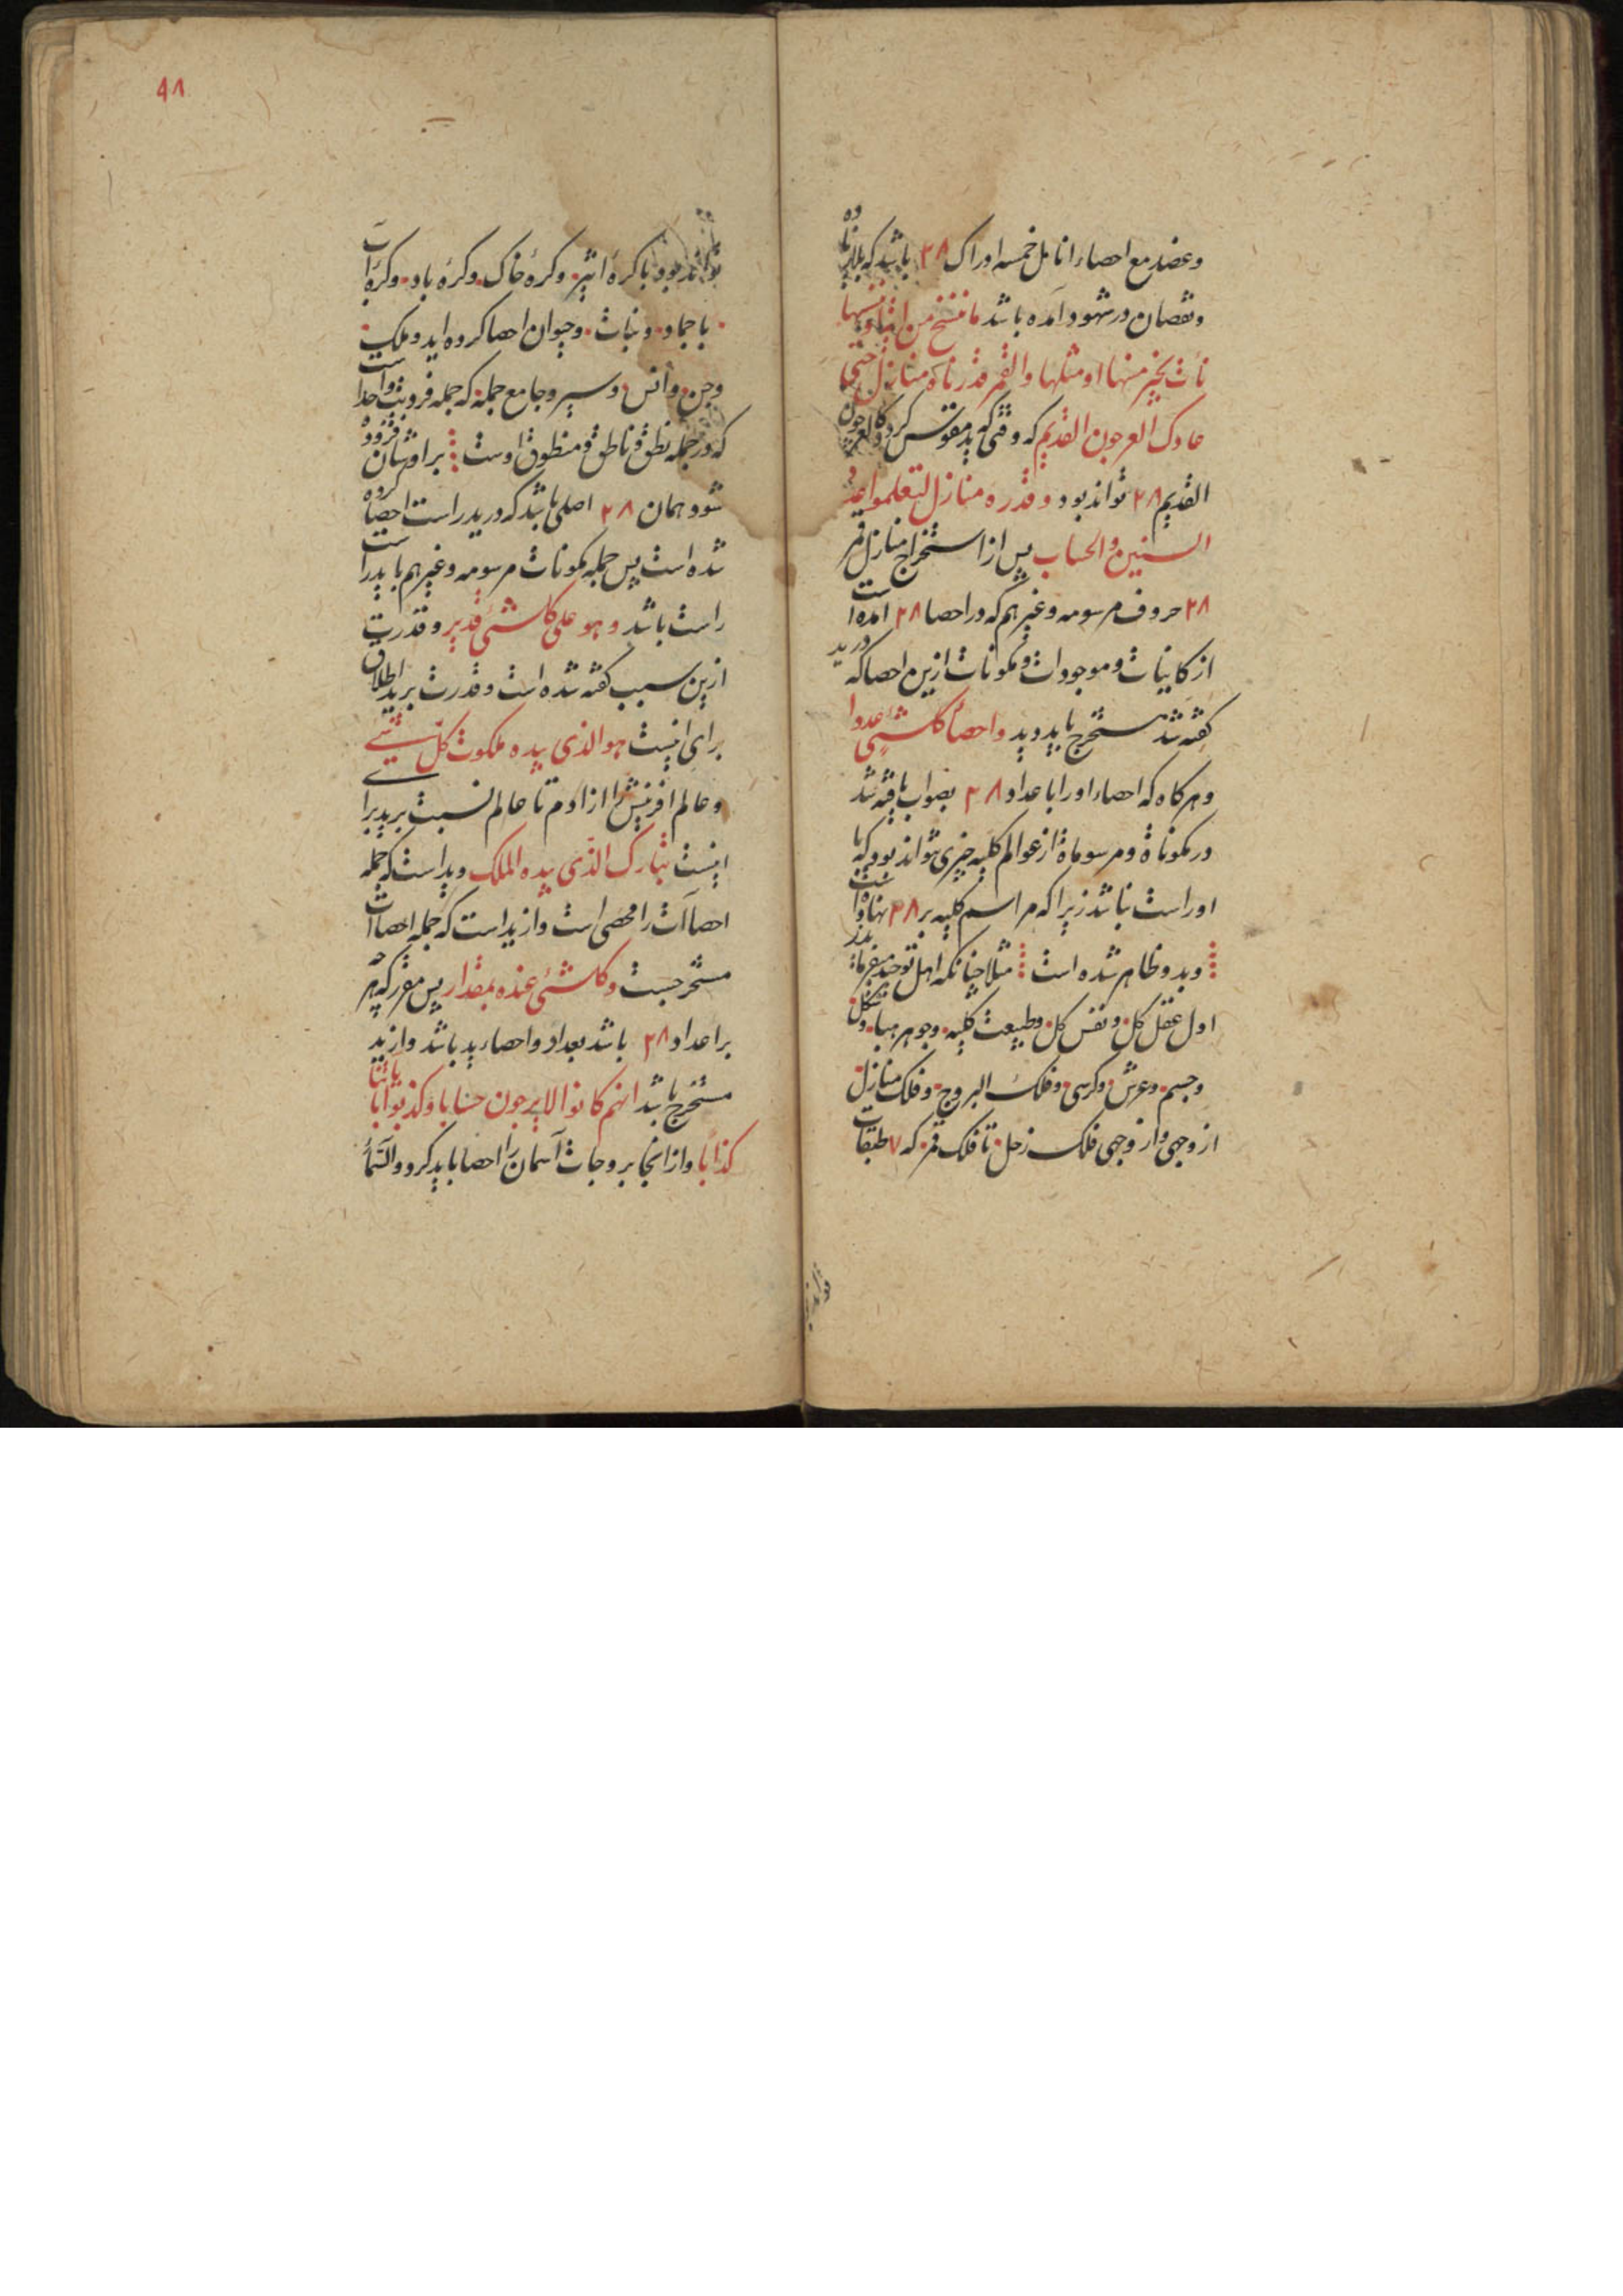 وعضد مع احصاء انامل خمسه اوراک ۲۸ باشد که بلا زیاده
ونقصان در شهود آمده باشد ما ننسخ من آیة او ننسها
نأت بخیر منها او مثلها والقمر قدرناه منازل حتی
عادک العرجون القدیم که وقتی که ید مقوس کردد کالعرجون
القدیم ۲۸ تواند بود وقدره منازل لتعلموا عدد
السنین والحساب پس از استخراج منازل قمر
۲۸ حروف مرسومه وغیرهم که در احصا ۲۸ آمده است
از کاینات وموجودات ومکونات ازین احصا که در ید
کفته شد مستخرج باید دید واحصا کلشئ عددا
وهرکاه که احصاء او را با عداد ۲۸ بصواب یافته شد
در مکوناة ومرسوماة از عوالم کلیه چیزی تواند بود که با
او راست نباشد زیرا که مراسم کلیه بر ۲۸ نهاده است
وبدو ظاهر شده است مثلا چنانکه اهل توحید میفرمایند
اول عقل کل ونفس کل وطبیعت کلیه وجوهر هبا وشکل
وجسم وعرش وکرسی وفلک البروج وفلک منازل
از وجهی واز وجهی فلک زحل تا فلک قمر که ۷ طبقات
۴۸
تواند بود با کرهٔ اثیر وکرهٔ خاک وکرهٔ باد وکرهٔ آب
با جماد ونبات وحیوان احصا کرده اید وملک
وجن وانس وسیر وجامع جمله که جمله فردیت واحد است
که در جمله نطق وناطق ومنطوق اوست بر اوشان فزوده
شود همان ۲۸ اصلی باشد که در ید راست احصا کرده
شده است پس جمله مکونات مرسومه وغیرهم با ید راست
راست باشد وهو علی کلشئ قدیر وقدرت
ازین سبب کفته شده است وقدرت بر ید اطلاق
برای اینست هو الذی بیده ملکوت کل شئ
وعالم افرینش را از آدم تا عالم نسبت بر ید برای
اینست تبارک الذی بیده الملک وید است که جمله
احصاآت را محصی است واز ید است که جمله احصاآت
مستخرجست وکلشئ عنده بمقدار پس مقر که هر چه
بر اعداد ۲۸ باشد بعداد واحصاء ید باشد واز ید
مستخرج باشد انهم کانوا لا یرجون حسابا وکذبوا بایاتنا
کذابا واز انجا بروجات آسمان را احصا باید کرد والسمآء